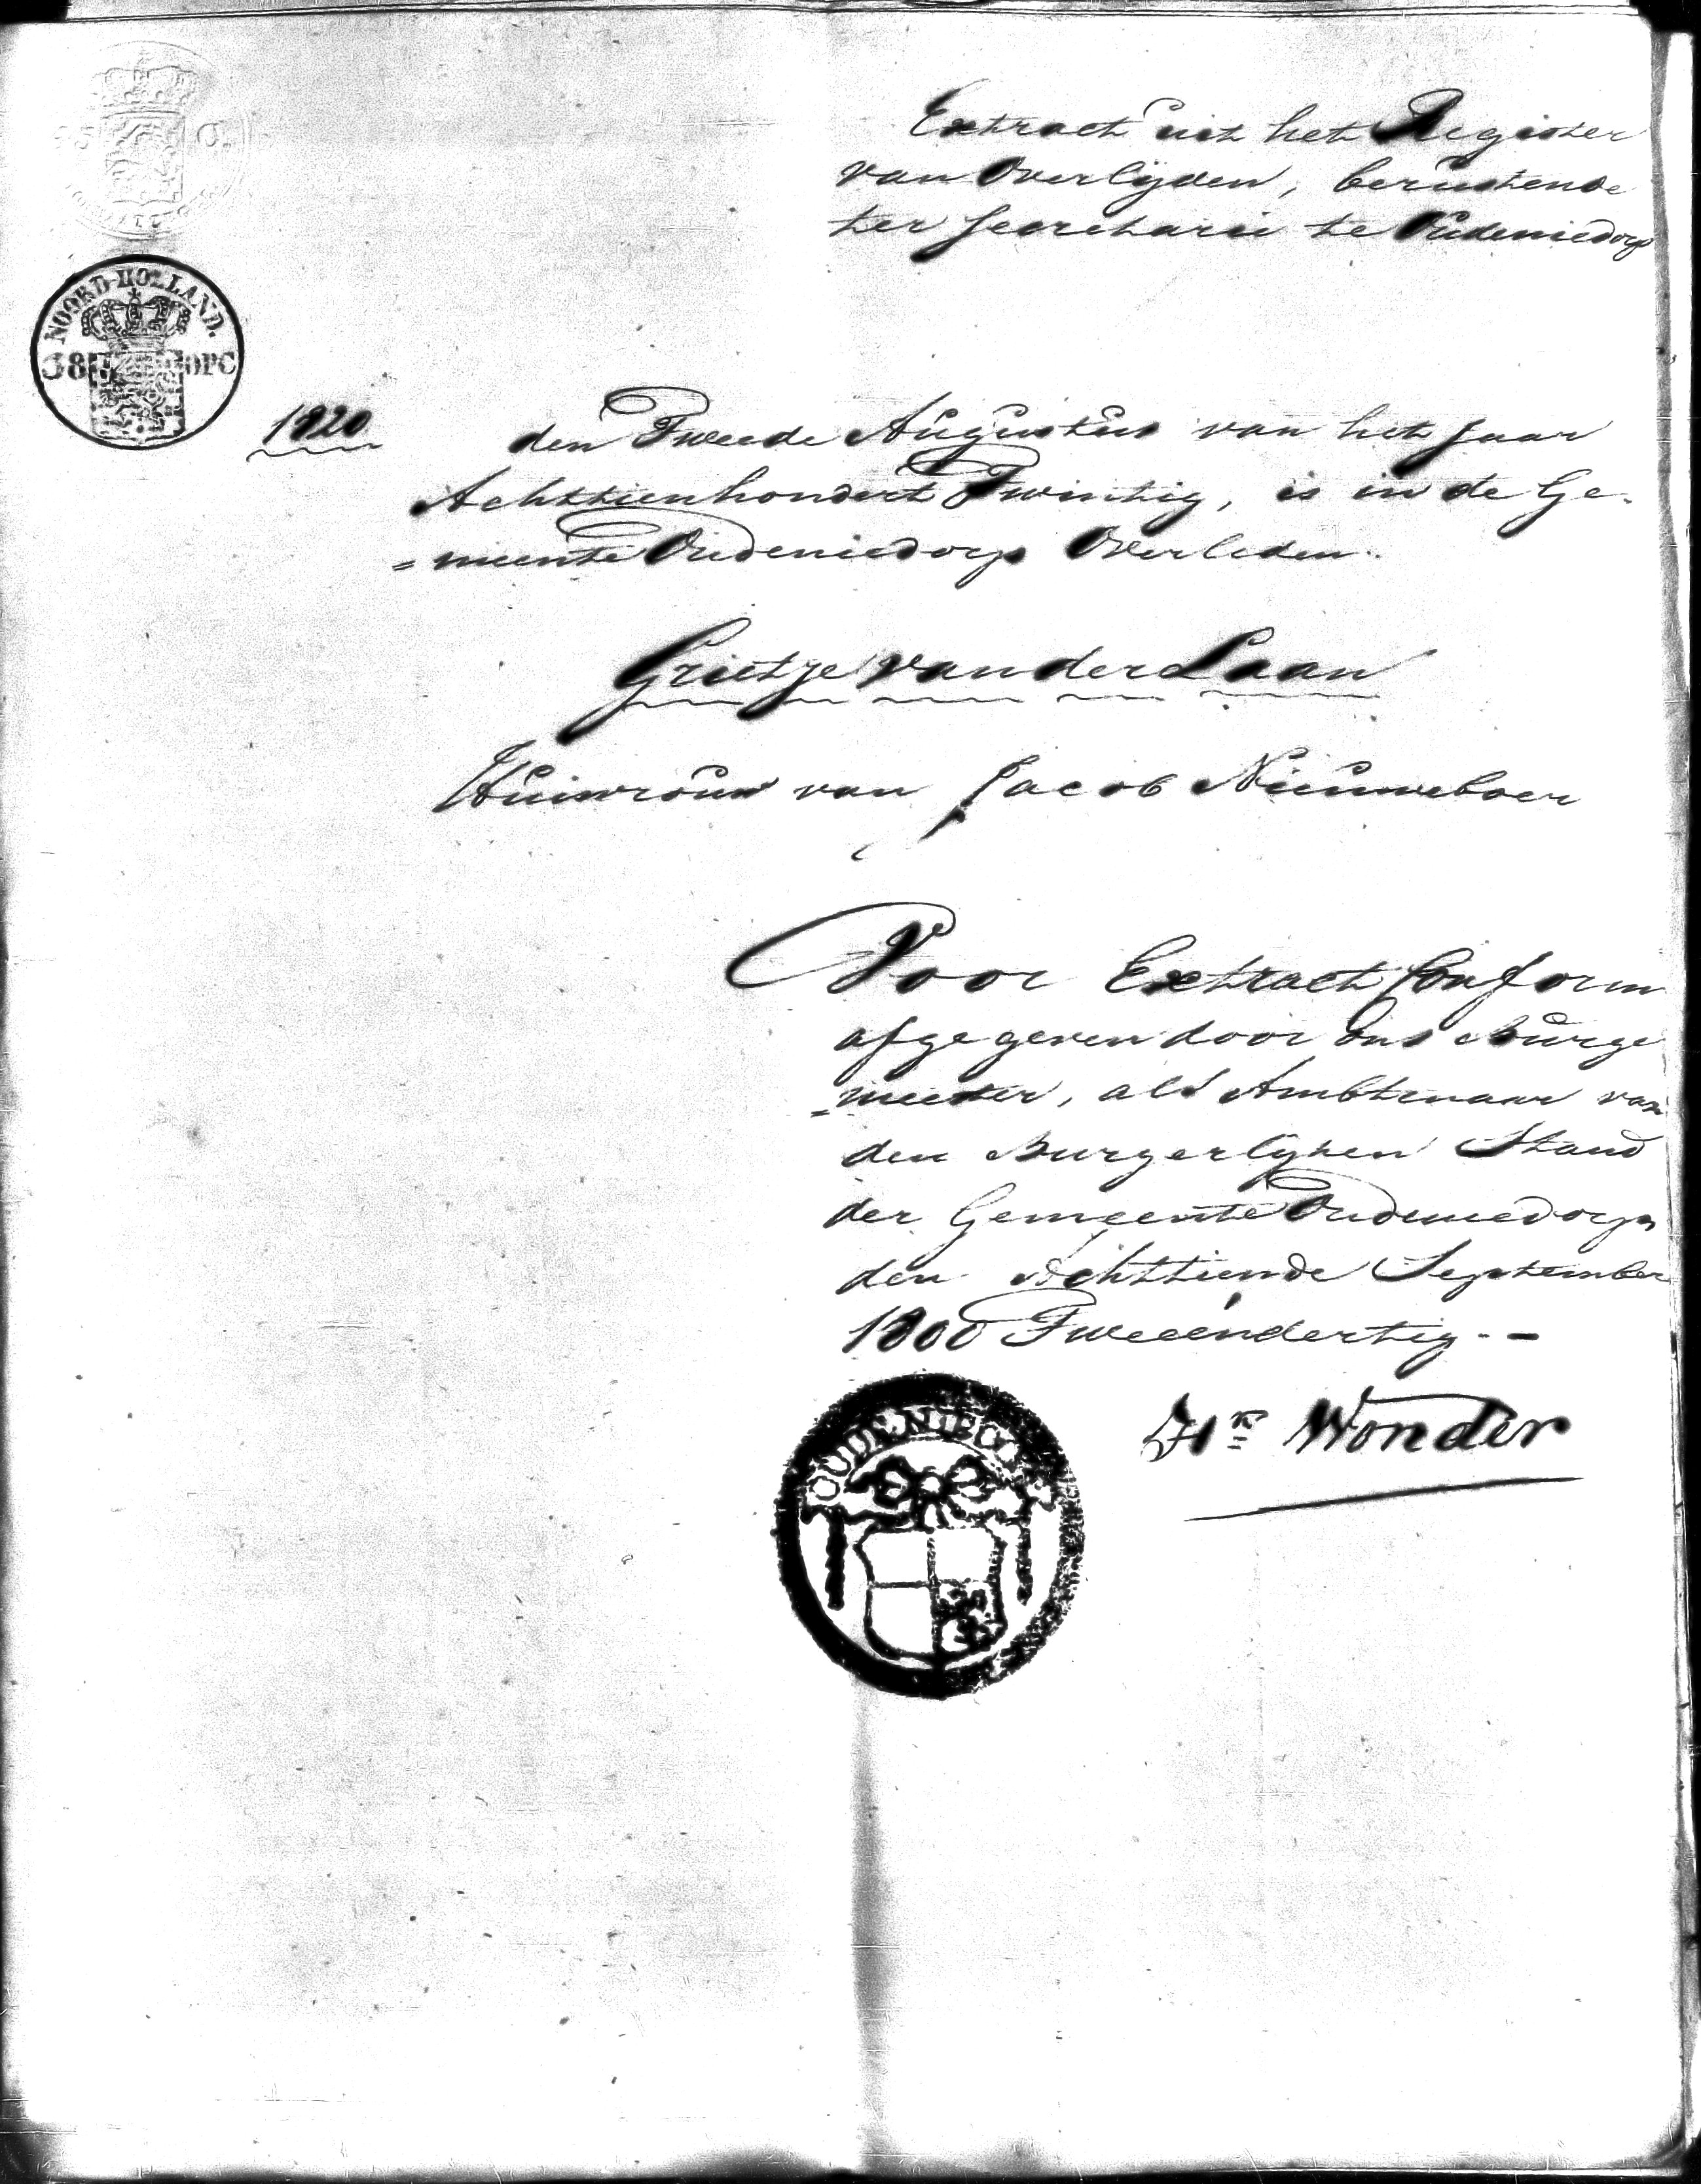 Extract uit het Register
van Overlijden, berustende
ter Secretarie te Oudeniedorp
NOORD-HOLLAND.
38 OPC
1820
den Tweede Augustus van het Jaar
Achttienhondert Twintig, is in de Ge-
=meente Oudeniedorp Overleden.
Grietje van der Laan
Huisvrouw van Jacob Nieuweboer
Voor Extract Conform
afgegeven door ons Burge
=meester, als Ambtenaar van
den Burgerlijken Stand
der Gemeente Oudeniedorp
den Achttiende September
1800 Tweeëndertig --
Wonder
OUDE NIEDORP